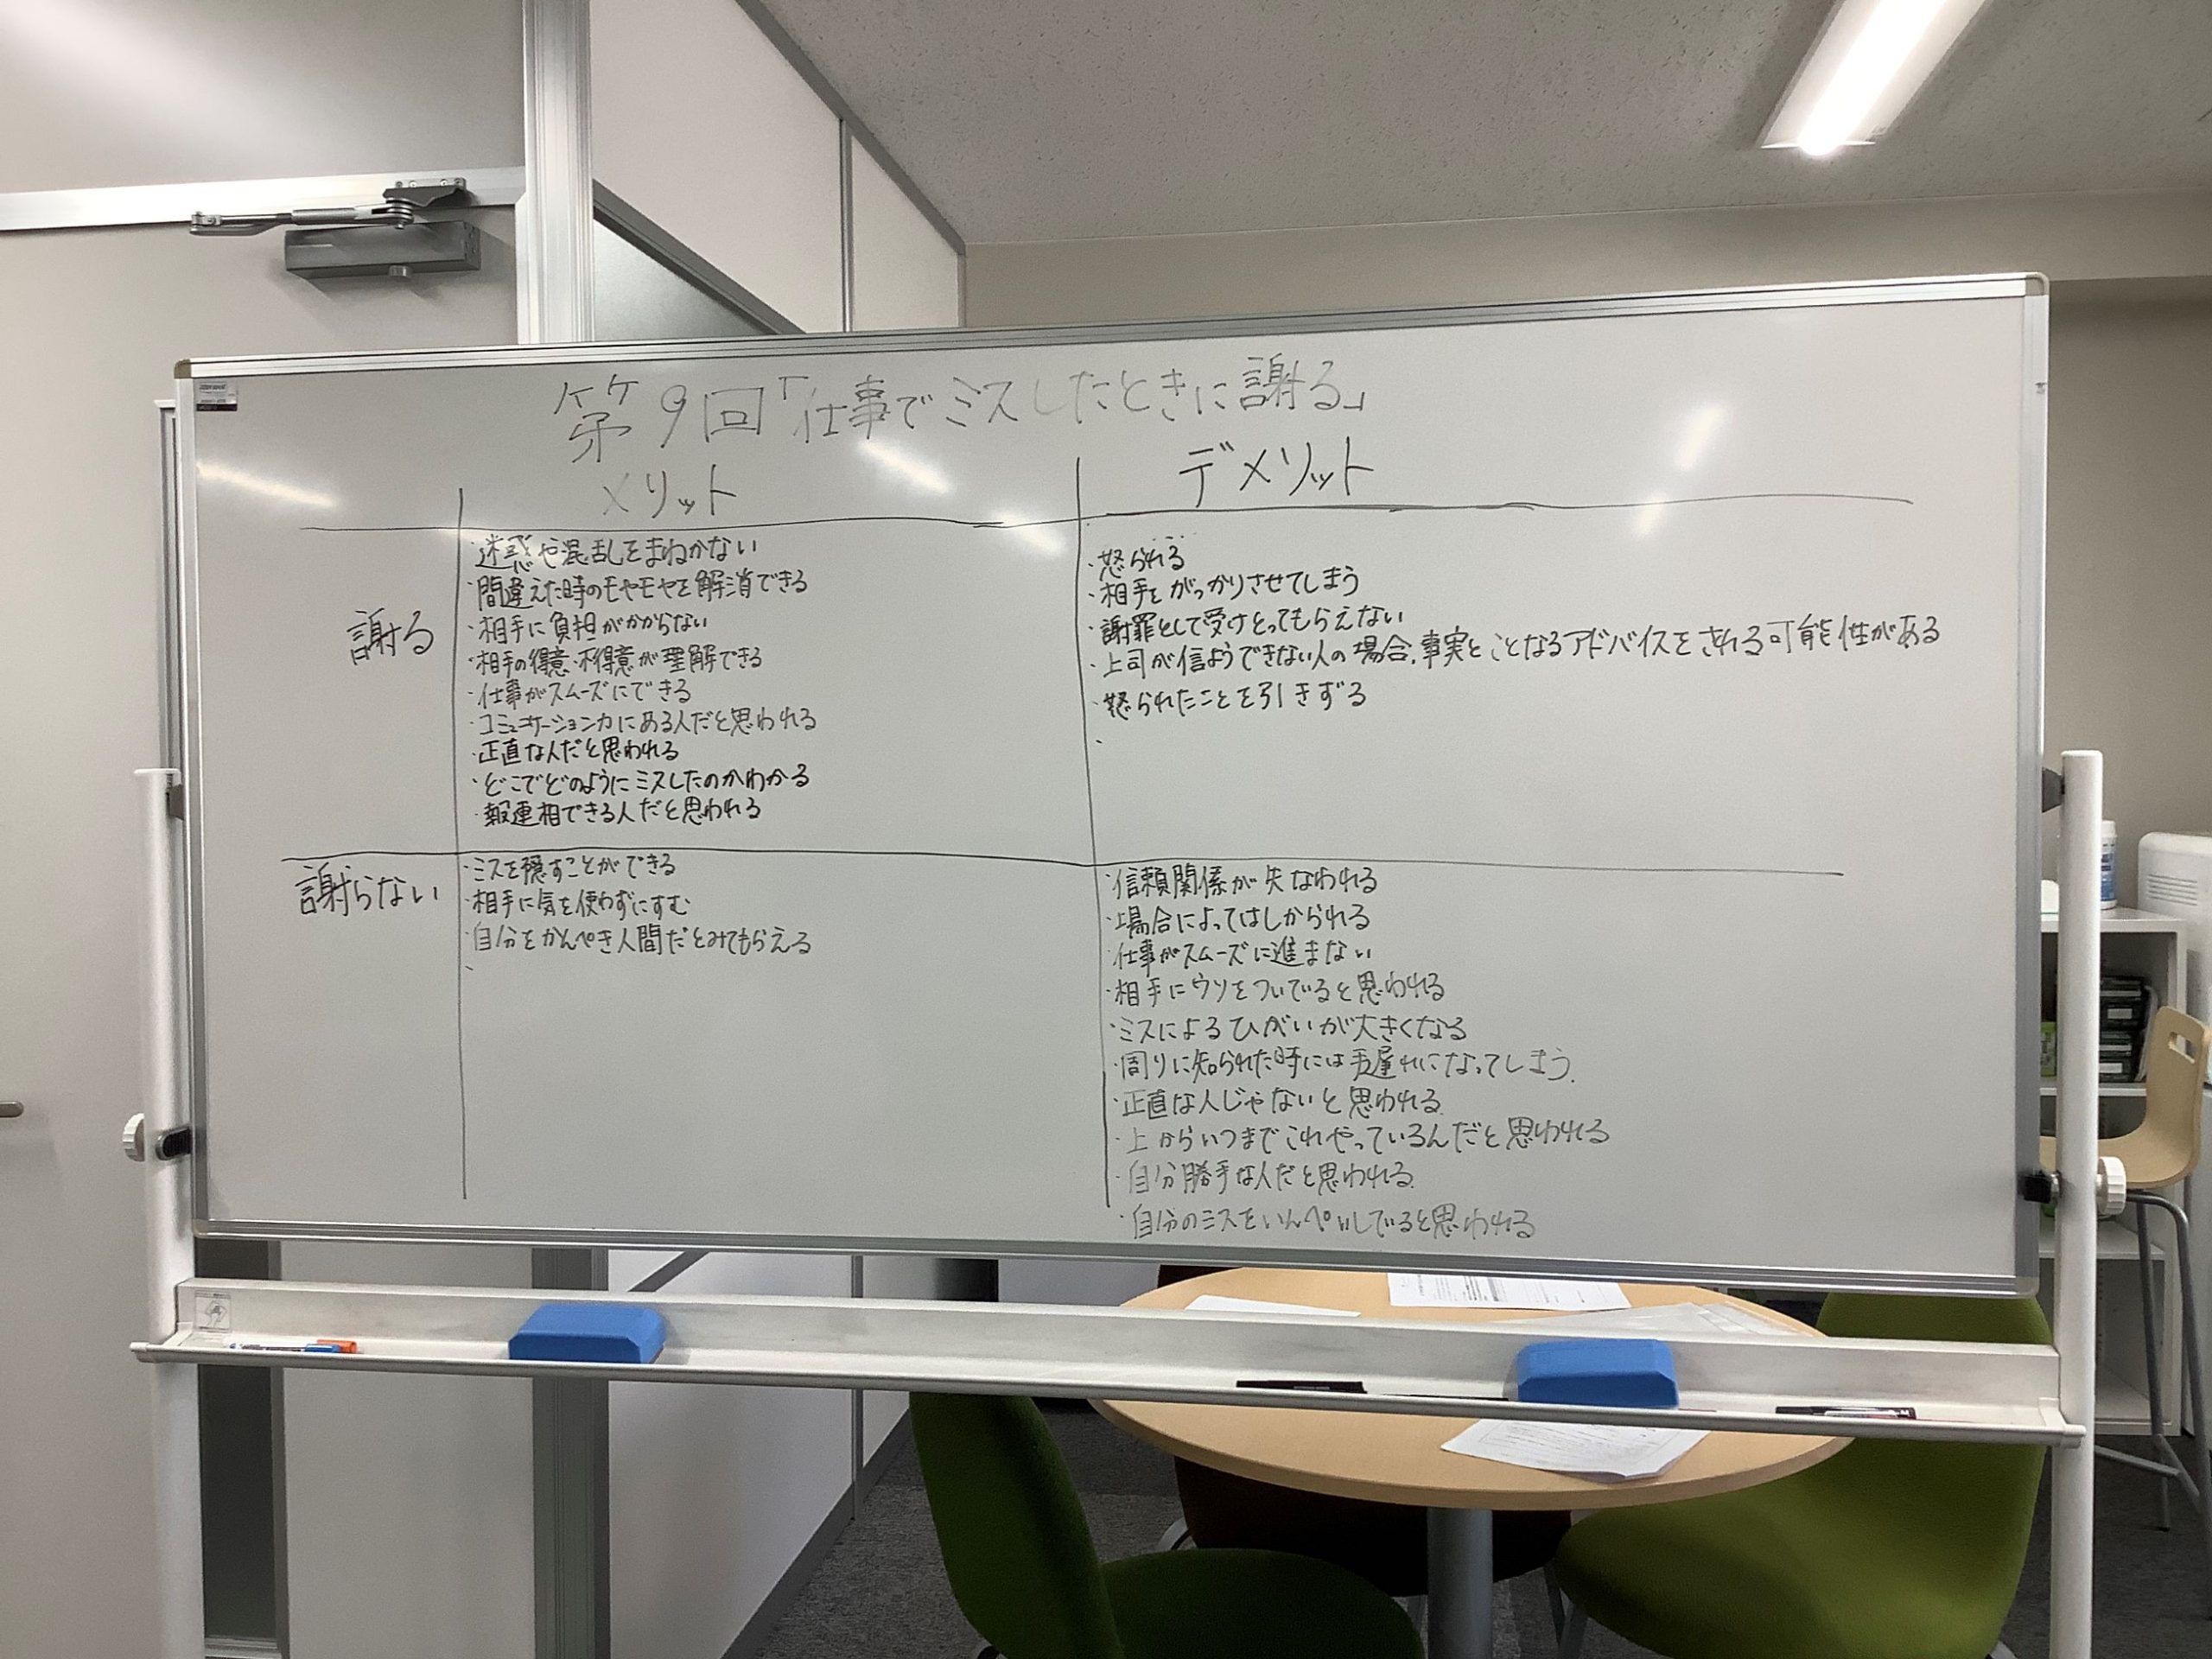 第9回「仕事でミスしたときに謝る」
メリット
デメリット
謝る
・迷惑や混乱をまねかない
・間違えた時のモヤモヤを解消できる
・相手に負担がかからない
・相手の得意・不得意が理解できる
・仕事がスムーズにできる
・コミュニケーション力にある人だと思われる
・正直な人だと思われる
・どこでどのようにミスしたのかわかる
・報連相できる人だと思われる
・怒られる
・相手をがっかりさせてしまう
・謝罪として受けとってもらえない
・上司が信ようできない人の場合、事実とことなるアドバイスをされる可能性がある
・怒られたことを引きずる
・
謝らない
・ミスを隠すことができる
・相手に気を使わずにすむ
・自分をかんぺき人間だとみてもらえる
・
・信頼関係が失なわれる
・場合によってはしかられる
・仕事がスムーズに進まない
・相手にウソをついていると思われる
・ミスによるひがいが大きくなる
・周りに知られた時には手遅れになってしまう.
・正直な人じゃないと思われる.
・上からいつまでこれやっているんだと思われる
・自分勝手な人だと思われる.
・自分のミスをいんぺいしていると思われる